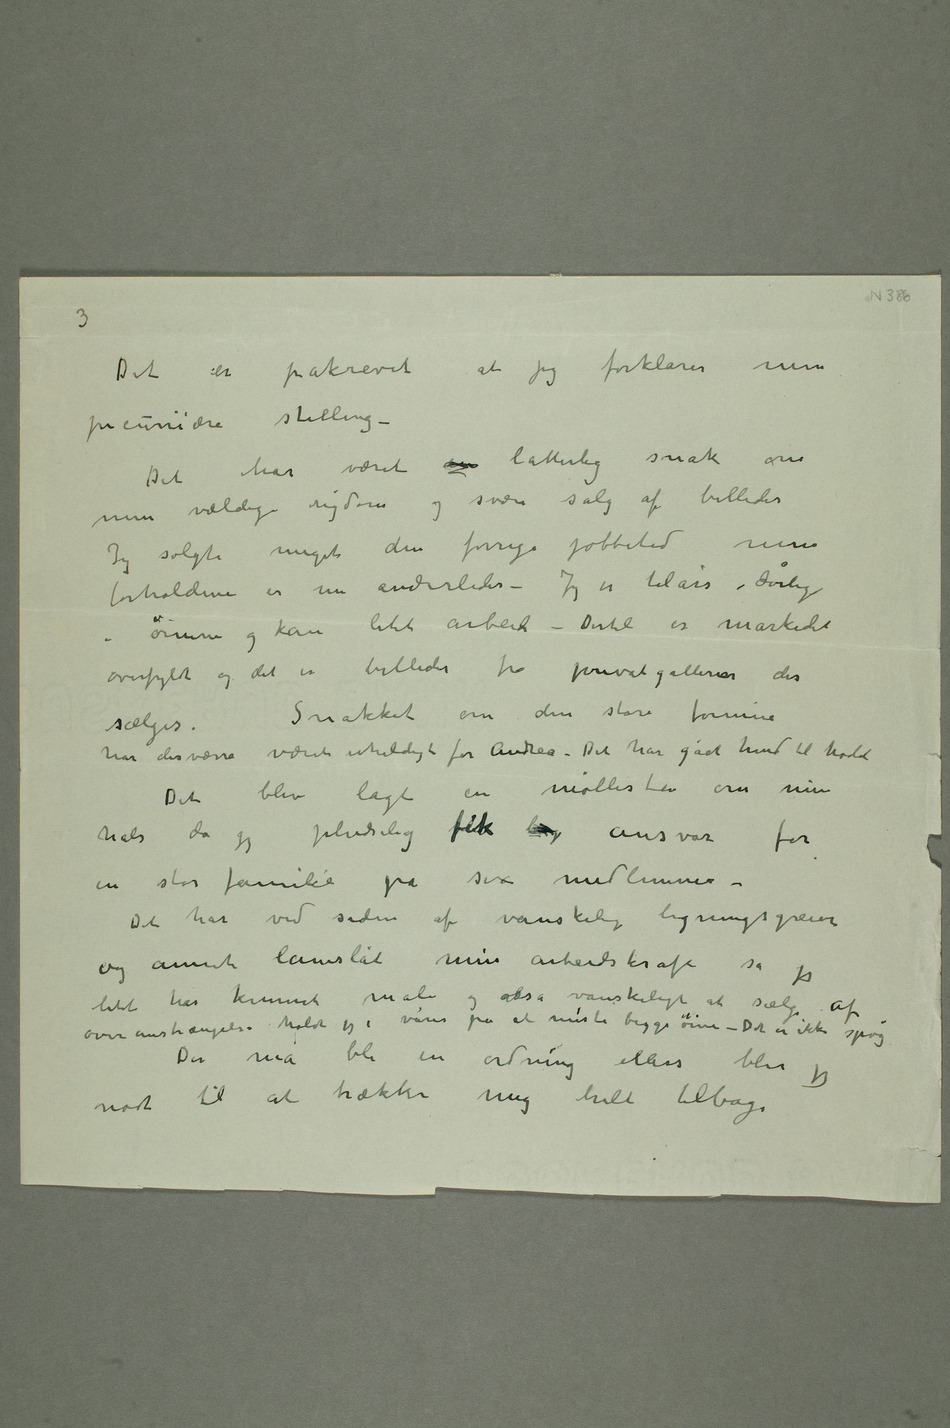 3
N 386
Det er påkrevet at jeg forklarer min
pecuniære stilling –
Det har været latterlig snak om
min vældige rigdom og svære salg af billeder
Jg solgte meget den forrige jobbetid men
forholdene er nu anderledes – Jg er tilårs, dårlig
i öinene og kan litet arbeide – Dertil er markedet
overfyldt og det er billeder fra privatgallerier der
sælges. Snakket om den store formue
har desværre været uheldigt for Andrea – Det har gået hend til hodet
Det blev lagt en møllesten om min
hals da jg pludselig fik ansvar for
en stor familie på sex medlemmer –
Det har ved siden af vanskelig ligningsgreier
og annet lamslåt min arbeidskraft så jg
litet har kunnet male og også vanskeligt at sælge af
overanstrængelse holdt jg i våres på at miste begge öine – Det er ikke spøg
Der må bli en ordning ellers blir jg
nødt til at trække mig helt tilbage